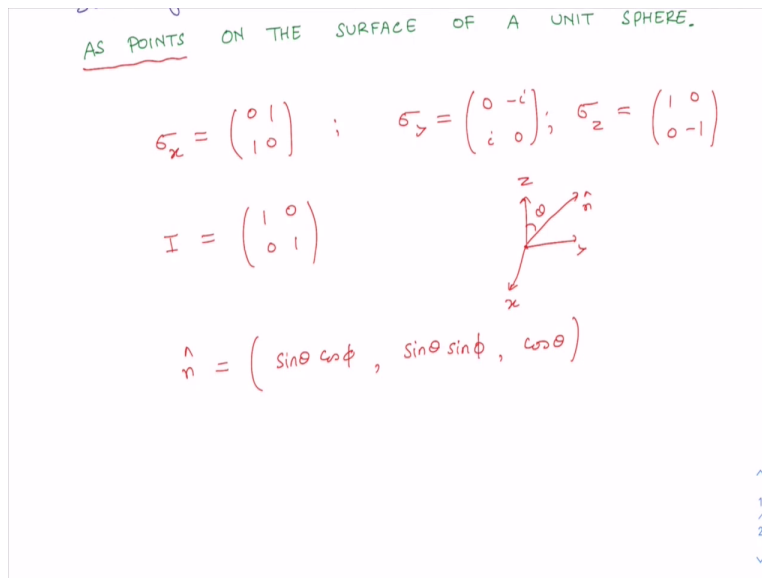 AS POINTS ON THE SURFACE OF A UNIT SPHERE.
σₓ = (0 1; 1 0) ; σ_y = (0 -i; i 0) ; σ_z = (1 0; 0 -1)
I = (1 0; 0 1)
z
θ n̂
y
x
n̂ = (sinθ cosφ, sinθ sinφ, cosθ)
1
2